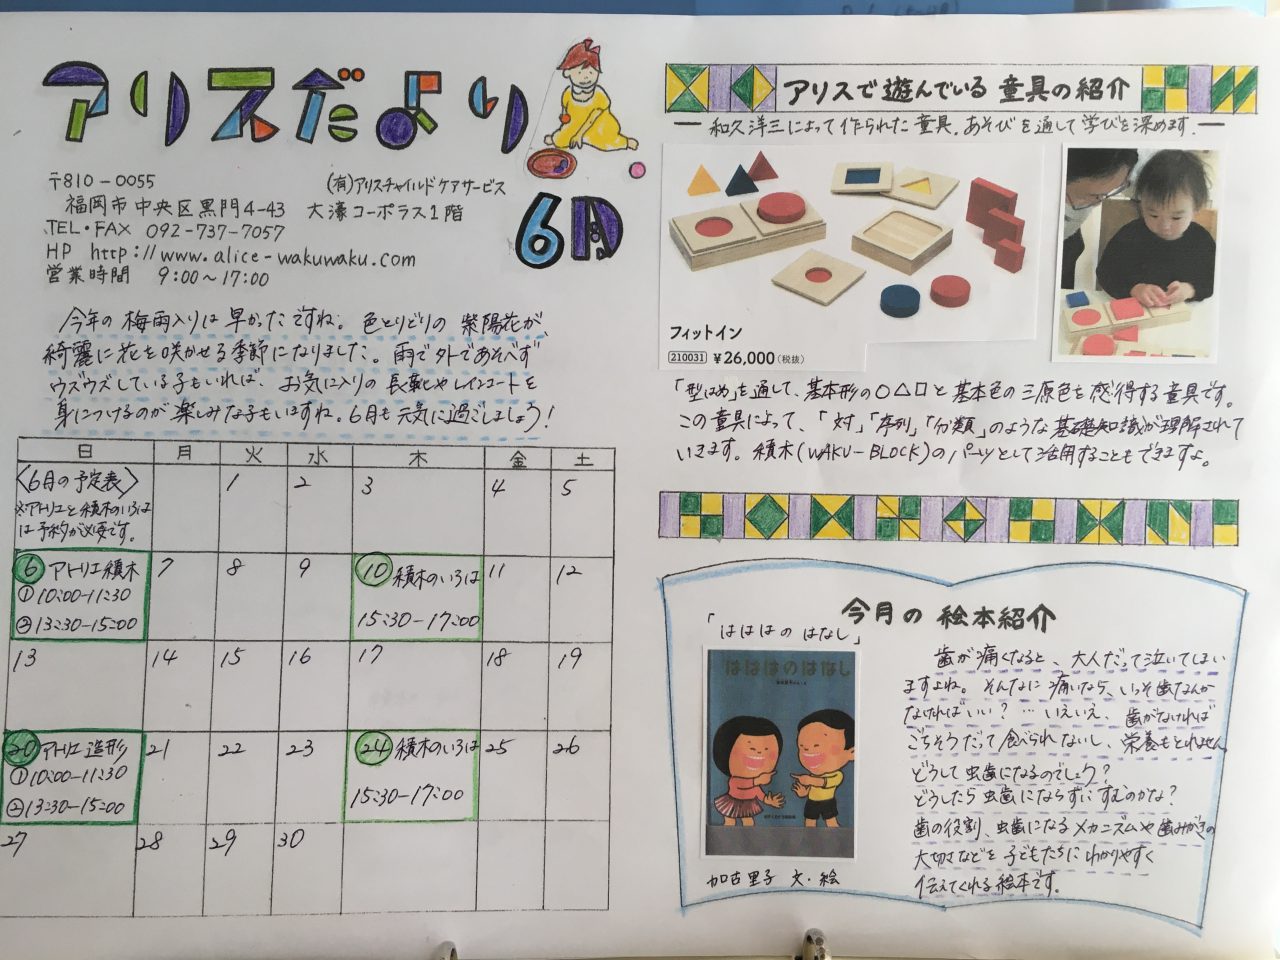 アリスだより
6月
〒810-0055
(有)アリスチャイルドケアサービス
福岡市中央区黒門4-43 大濠コーポラス1階
TEL・FAX 092-737-7057
HP http://www.alice-wakuwaku.com
営業時間 9:00~17:00
今年の梅雨入りは早かったですね。色とりどりの紫陽花が、
綺麗に花を咲かせる季節になりました。雨で外であそべず
ウズウズしている子もいれば、お気に入りの長靴やレインコートを
身につけるのが楽しみな子もいますね。6月も元気に過ごしましょう!
日 月 火 水 木 金 土
〈6月の予定表〉
※アトリエと積木のいろは
は予約が必要です。
1 2 3 4 5
6 アトリエ積木
①10:00-11:30
②13:30-15:00
7 8 9
10 積木のいろは
15:30-17:00
11 12
13 14 15 16 17 18 19
20 アトリエ造形
①10:00-11:30
②13:30-15:00
21 22 23
24 積木のいろは
15:30-17:00
25 26
27 28 29 30
アリスで遊んでいる童具の紹介
―和久洋三によって作られた童具。あそびを通して学びを深めます。―
フィットイン
210031 ¥26,000(税抜)
「型はめ」を通して、基本形の○△□と基本色の三原色を感得する童具です。
この童具によって、「対」「序列」「分類」のような基礎知識が理解されて
いきます。積木(WAKU-BLOCK)のパーツとして活用することもできますよ。
今月の絵本紹介
「はははのはなし」
はははのはなし
加古里子 文・絵
歯が痛くなると、大人だって泣いてしまい
ますよね。そんなに痛いなら、いっそ歯なんか
なければいい?…いえいえ、歯がなければ
ごちそうだって食べられないし、栄養もとれません。
どうして虫歯になるのでしょう?
どうしたら虫歯にならずにすむのかな?
歯の役割、虫歯になるメカニズムや歯みがきの
大切さなどを子どもたちにわかりやすく
伝えてくれる絵本です。